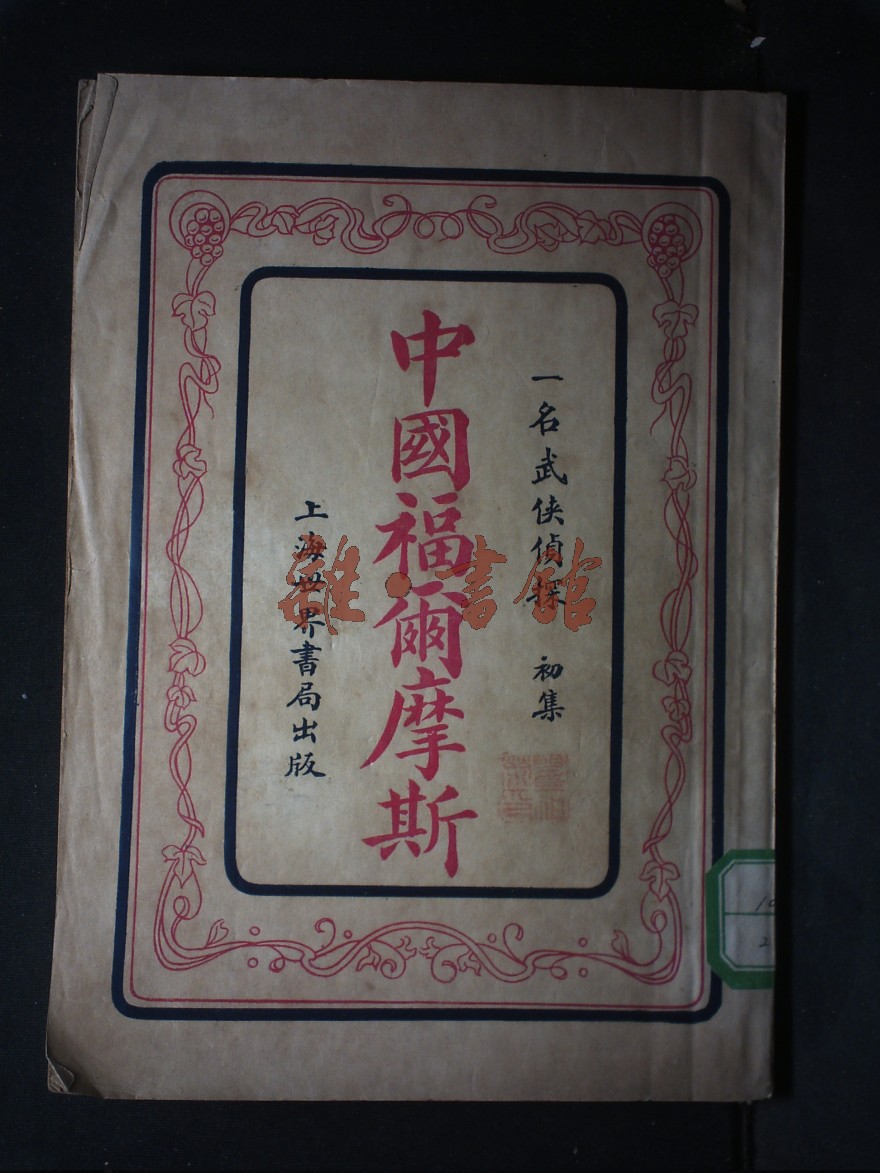 一名武俠偵探 初集
中國福爾摩斯
上海世界書局出版
雜·書館